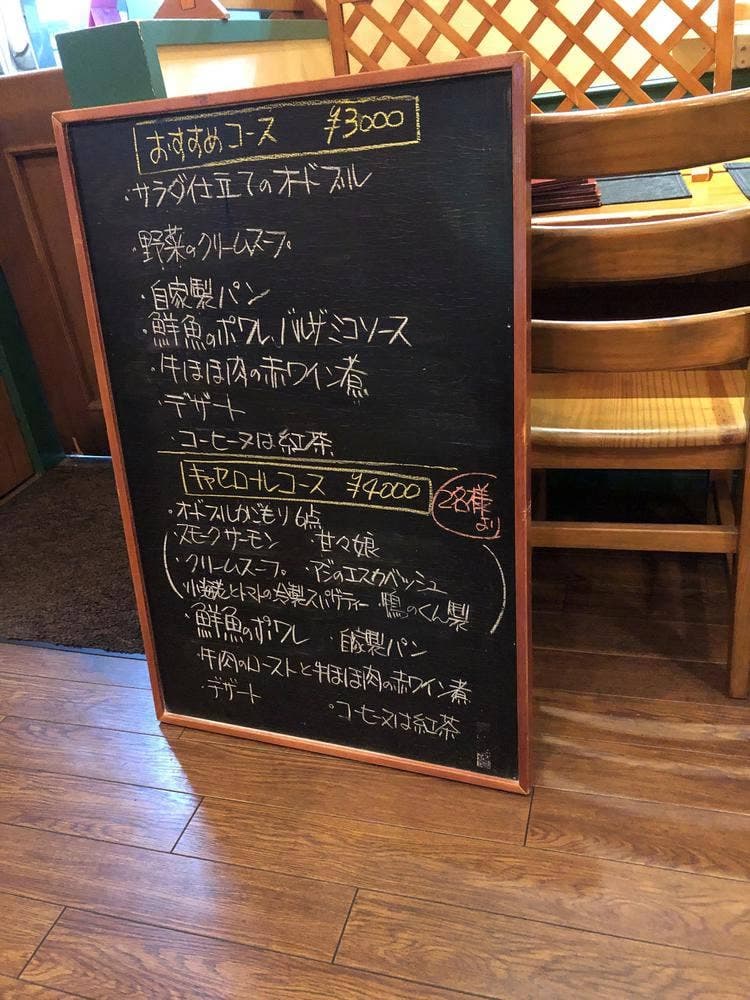 おすすめコース ¥3000
・サラダ仕立てのオードブル
・野菜のクリームスープ。
・自家製パン
・鮮魚のポワレ、バルサミコソース
・牛ほほ肉の赤ワイン煮
・デザート
・コーヒー又は紅茶
キャセロールコース ¥4000 2名様より
・オードブルかごもり6点
・スモークサーモン ・甘々娘
・クリームスープ。 ・アジのエスカベッシュ
・小海老とトマトの冷製スパゲティー ・鴨のくん製
・鮮魚のポワレ ・自家製パン
・牛肉のローストと牛ほほ肉の赤ワイン煮
・デザート ・コーヒー又は紅茶